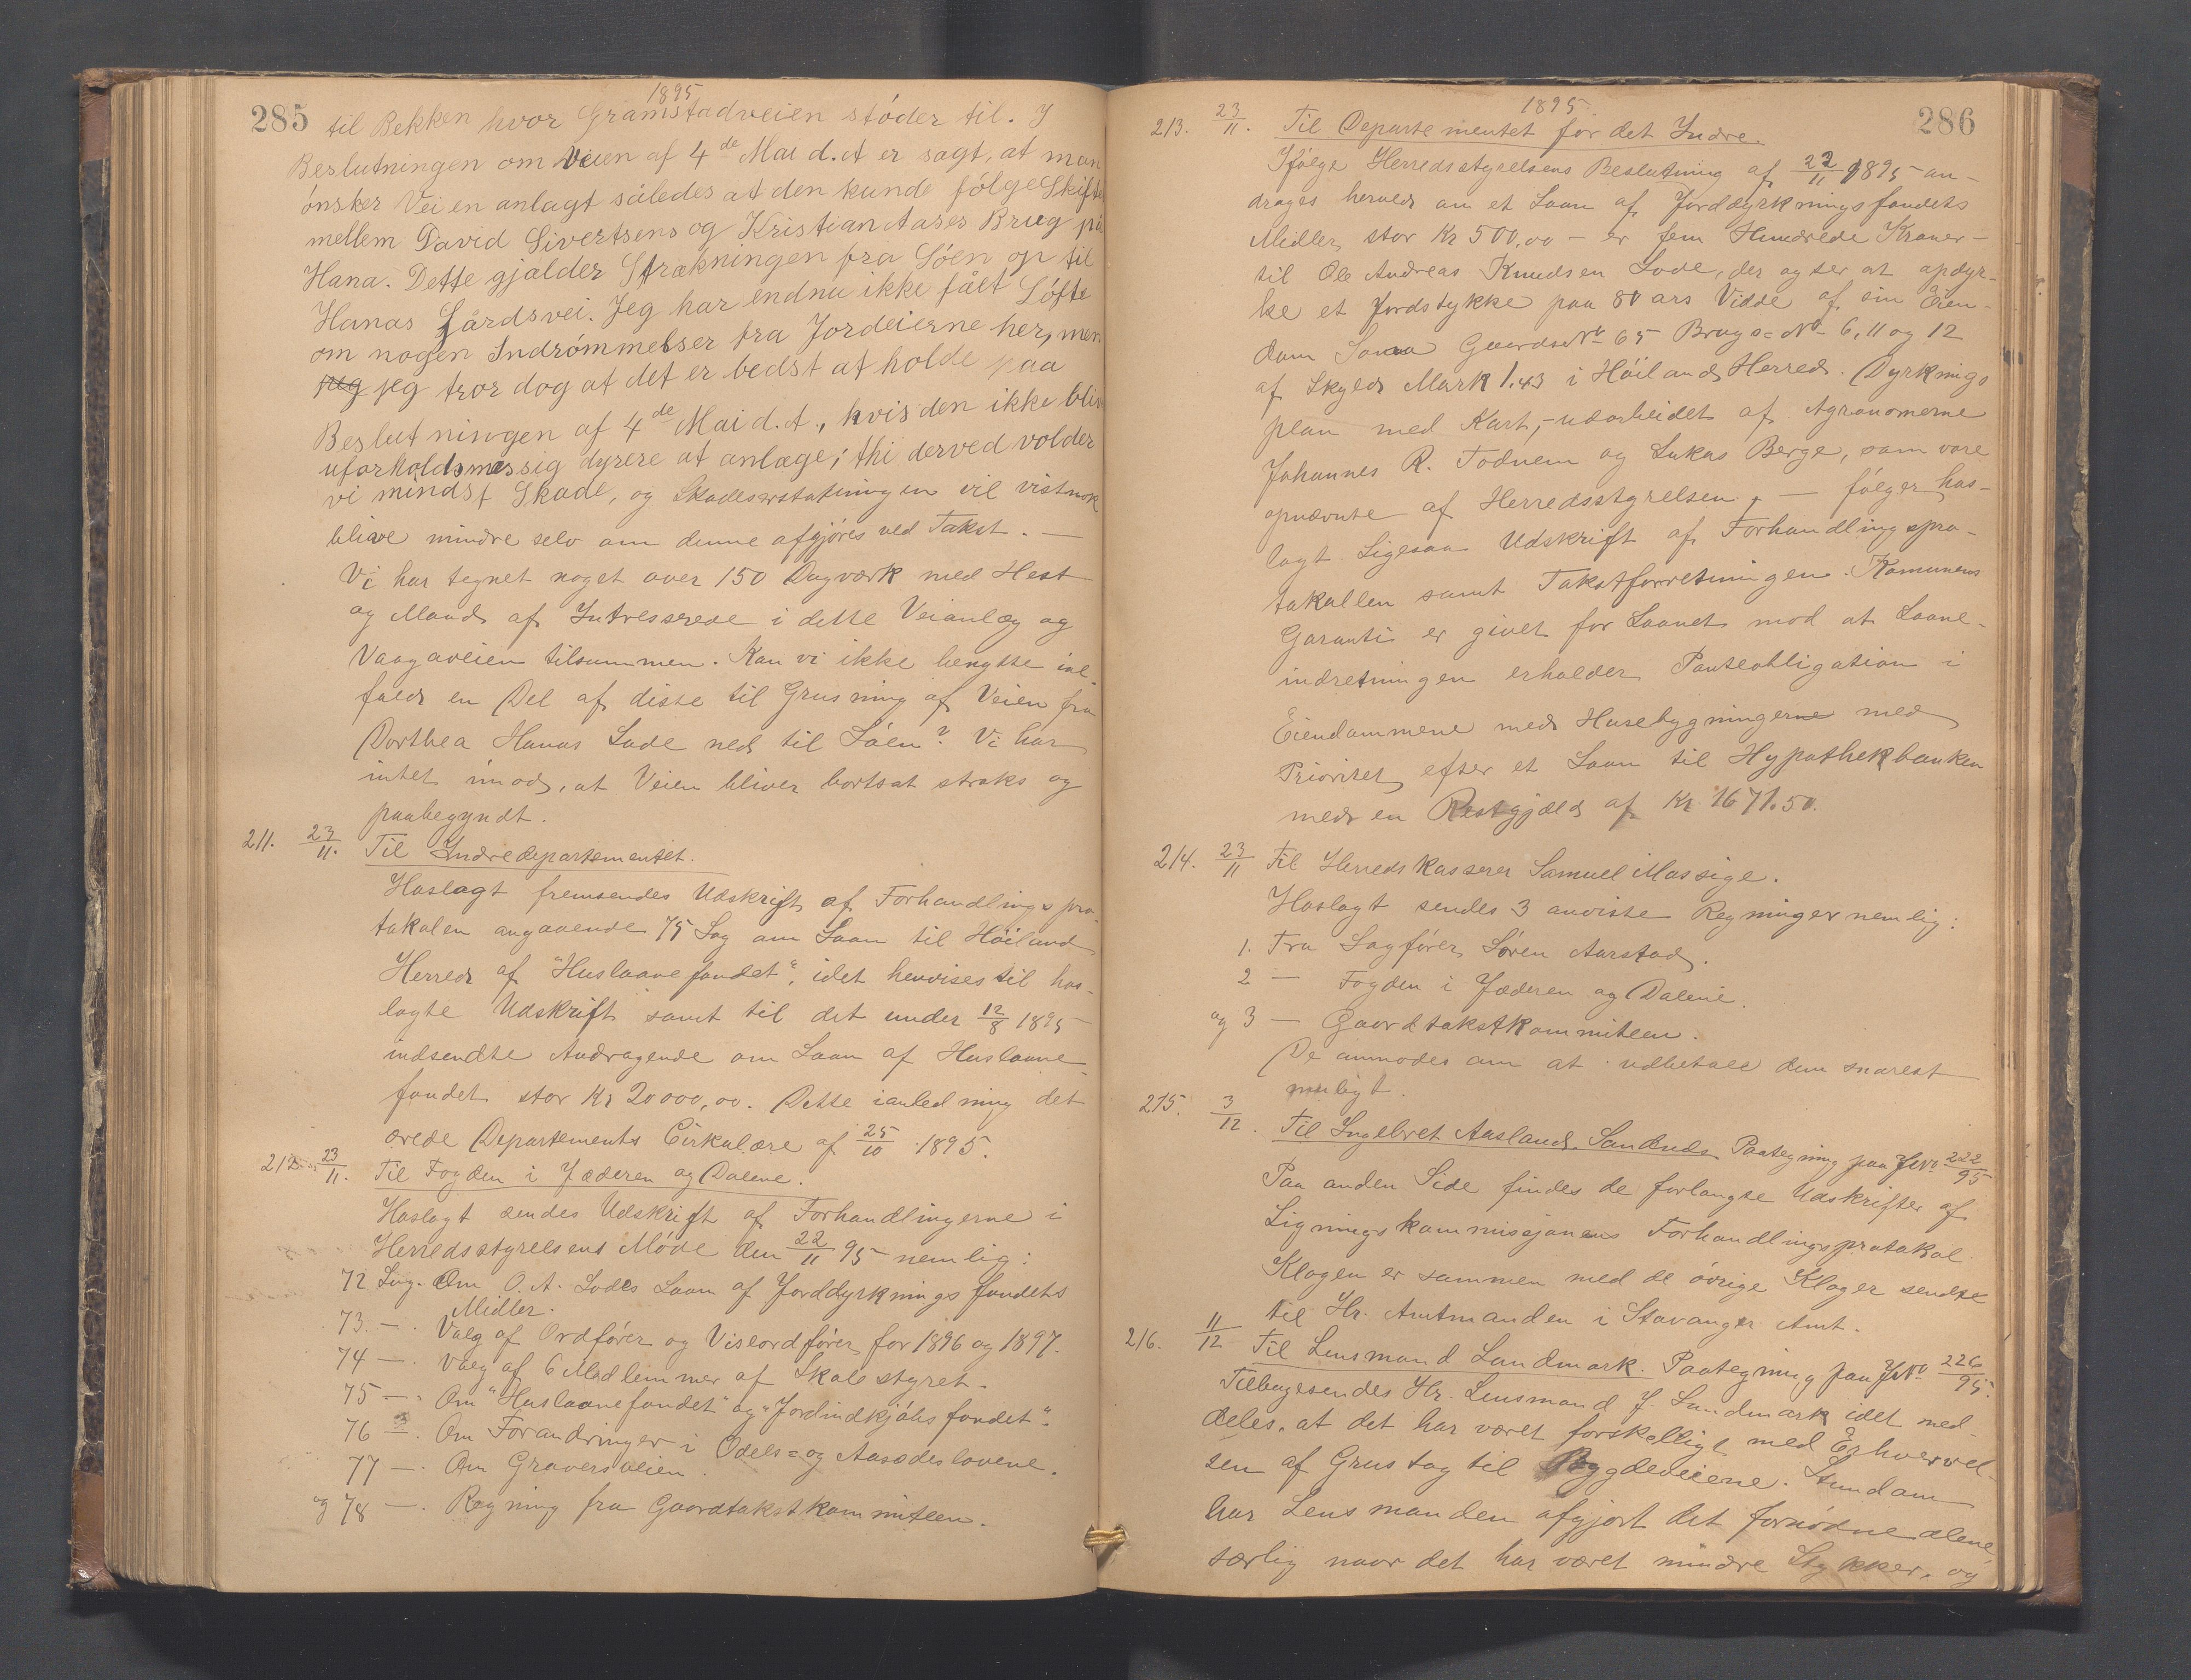 285
1895
til Bekken hvor Gramstadveien støder til. I
Beslutningen om Veien af 4de Mai d.A er sagt, at man
ønsker Veien anlagt således at den kunde følge Skifte
mellem David Sivertsens og Kristian Aases Brug på
Hana. Dette gjælder Strækningen fra Søen op til
Hanas Gårdsvei. Jeg har endnu ikke fået Løfte
om nogen Indrømmelser fra Jordeierne her, men
jeg jeg tror dog at det er bedst at holde paa
Beslutningen af 4de Mai d.A., hvis den ikke bliv
uforholdsmessig dyrere at anlæge; thi derved volder
vi mindst Skade, og Skadeserstatningen vil vistnok
blive mindre selv om denne afgjøres ved Takst. —
Vi har tegnet noget over 150 Dagværk med Hest
og Mand af Intresserede i dette Veianlæg og
Vaagaveien tilsammen. Kan vi ikke benytte ial-
fald en Del af disse til Grusning af Veien fra
Dorthea Hanas Lade ned til Søen? Vi har
intet imod, at Veien bliver bortsat straks og
paabegyndt.
211. 23/11. Til Indredepartementet.
Hoslagt fremsendes Udskrift af Forhandlingspro-
tokolen angaaende 75 Sag om Laan til Höiland
Herred af "Huslaanefondet", idet henvises til hos-
lagte Udskrift samt til det under 12/8 1895
indsendte Andragende om Laan af Huslaane-
fondet stor Kr 20000,00. Dette ianledning det
ærede Departements Cirkulære af 25/10 1895.
212 23/11. Til Fogden i Jæderen og Dalene.
Hoslagt sendes Udskrift af Forhandlingerne i
Herredsstyrelsens Møde den 22/11 95 nemlig:
72 Sag. Om O. A. Lodes Laan af Jorddyrkningsfondets
Midler.
73. — . Valg af Ordfører og Viseordfører for 1896 og 1897.
74 — . Valg af 6 Medlemmer af Skolestyret.
75 — . Om "Huslaanefondet" og "Jordindkjøbsfondet".
76 — . Om Forandringer i Odels= og Aasædeslovene.
77 — . Om Graversveien.
og 78 — . Regning fra Gaardtakstkommiteen.
286
1895.
213. 23/11. Til Departementet for det Indre.
Ifølge Herredsstyrelsens Beslutning af 22/11 1895 an-
drages herved om et Laan af Jorddyrkningsfondets
Midler, stor Kr 500,00 — er fem Hundrede Kroner —
til Ole Andreas Knudsen Lode, der agter at opdyr-
ke et Jordstykke paa 80 ars Vidde af sin Eien-
dom Gaards No 65 Brugs= No 6, 11 og 12
af Skyld Mark 1.43 i Höiland Herred. Dyrknings
plan med Kart, - udarbeidet af Agronomerne
Johannes R. Todnem og Lukas Berge, som vare
opnævnte af Herredsstyrelsen, — følger hos-
lagt. Ligesaa Udskrift af Forhandlingspro-
tokollen samt Takstforretningen. Komunens
Garanti er givet for Laanet mod at Laane-
indretningen erholder Panteobligation i
Eiendommene med Husebygningerne med
Prioritet efter et Laan til Hypothekbanken
med en Restgjæld af Kr. 1671.50.
214. 23/11 Til Herredskasserer Samuel Massige.
Hoslagt sendes 3 anviste Regninger nemlig:
1. Fra Sagfører Søren Aarstad.
2 — Fogden i Jæderen og Dalene.
og 3 — Gaardtakstkommiteen.
De anmodes om at udbetale dem snarest
muligt.
215. 3/12. Til Ingebret Aasland, Sandnes. Paategning paa J No 222/95
Paa anden Side findes de forlangte Udskrifter af
Ligningskommissjonens Forhandlingsprotokol.
Klagen er sammen med de øvrige Klager sendte
til Hr. Amtmanden i Stavanger Amt.
216. 11/12 Til Lensmand Landmark. Paategning paa J No 226/95.
Tilbagesendes Hr. Lensmand J. Landmark idet med-
deles, at det har været forskelligt med Erhvervel-
sen af Grustag til Bygdeveiene. Stundom
har Lensmanden afgjort det fornødne alene,
særlig naar det har været mindre Stykker, og